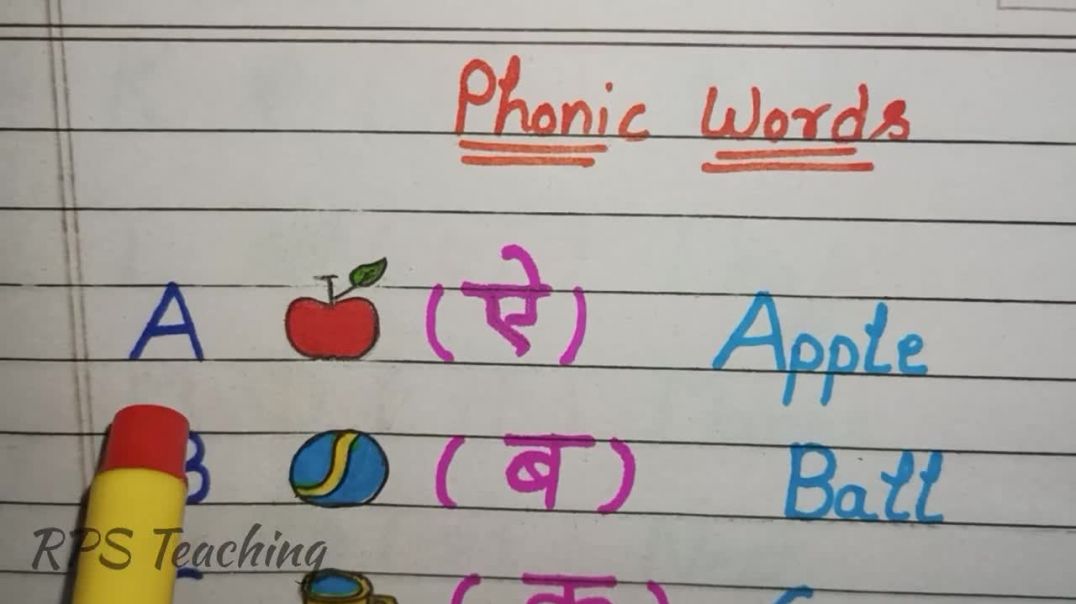 Phonic Words
A (ऐ) Apple
B (ब) Ball
RPS Teaching
(क)